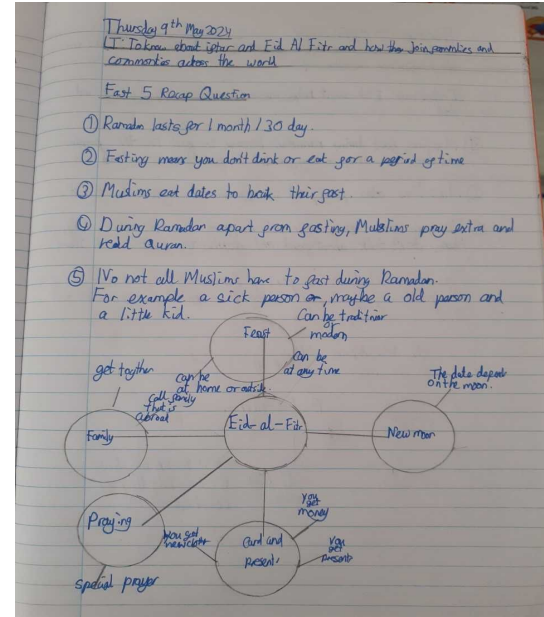 Thursday 9th May 2024
LI: To know about iftar and Eid Al Fitr and how they join families and
commonties across the world
Fast 5 Recap Question
① Ramadan lasts for 1 month / 30 day.
② Fasting means you don't drink or eat for a period of time
③ Muslims eat dates to break their fast.
④ During Ramadan apart from fasting, Muslims pray extra and
read Quran.
⑤ No not all Muslims have to fast during Ramadan.
For example a sick person or, maybe a old person and
a little kid.
Feast
Can be traditinor
or
modern
can be
at any time
can be
at home or outside
get togther
call family
that is
abroad
Family
Eid-al-Fitr
New moon
The date depend
on the moon.
Praying
special prayer
Card and
presents
you get
new cloths
you
get
money
you
get
presents